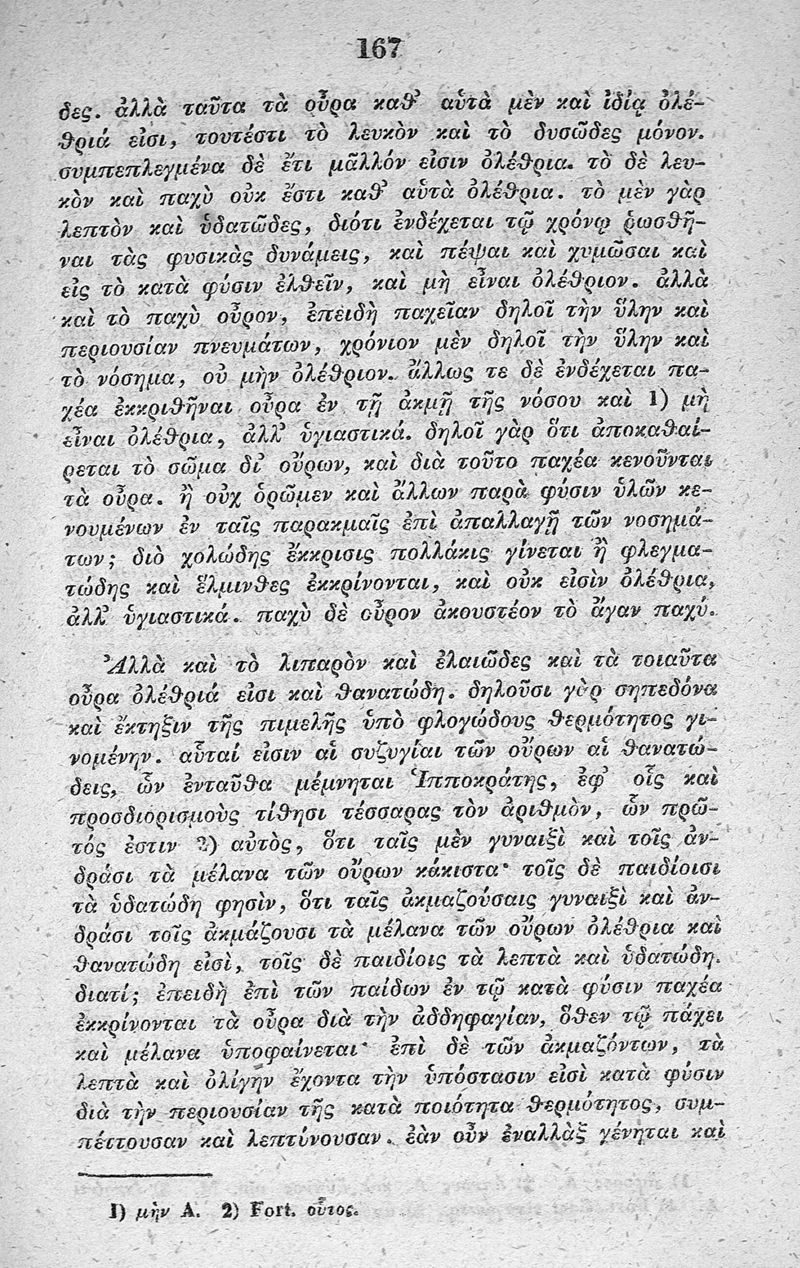 167
δες. ἀλλὰ ταῦτα τὰ οὖρα καθ’ αὑτὰ μὲν καὶ ἰδίᾳ ὀλέ-
θριά εἰσι, τουτέστι τὸ λευκὸν καὶ τὸ δυσῶδες μόνον.
συμπεπλεγμένα δὲ ἔτι μᾶλλόν εἰσιν ὀλέθρια. τὸ δὲ λευ-
κὸν καὶ παχὺ οὐκ ἔστι καθ’ αὑτὰ ὀλέθρια. τὸ μὲν γὰρ
λεπτὸν καὶ ὑδατῶδες, διότι ἐνδέχεται τῷ χρόνῳ ῥωσθῆ-
ναι τὰς φυσικὰς δυνάμεις, καὶ πέψαι καὶ χυμῶσαι καὶ
εἰς τὸ κατὰ φύσιν ἐλθεῖν, καὶ μὴ εἶναι ὀλέθριον. ἀλλὰ
καὶ τὸ παχὺ οὖρον, ἐπειδὴ παχεῖαν δηλοῖ τὴν ὕλην καὶ
περιουσίαν πνευμάτων, χρόνιον μὲν δηλοῖ τὴν ὕλην καὶ
τὸ νόσημα, οὐ μὴν ὀλέθριον. ἄλλως τε δὲ ἐνδέχεται πα-
χέα ἐκκριθῆναι οὖρα ἐν τῇ ἀκμῇ τῆς νόσου καὶ 1) μὴ
εἶναι ὀλέθρια, ἀλλ’ ὑγιαστικά. δηλοῖ γὰρ ὅτι ἀποκαθαί-
ρεται τὸ σῶμα δι’ οὔρων, καὶ διὰ τοῦτο παχέα κενοῦνται
τὰ οὖρα. ἢ οὐχ ὁρῶμεν καὶ ἄλλων παρὰ φύσιν ὑλῶν κε-
νουμένων ἐν ταῖς παρακμαῖς ἐπὶ ἀπαλλαγῇ τῶν νοσημά-
των; διὸ χολώδης ἔκκρισις πολλάκις γίνεται ἢ φλεγμα-
τώδης καὶ ἕλμινθες ἐκκρίνονται, καὶ οὐκ εἰσὶν ὀλέθρια,
ἀλλ’ ὑγιαστικά. παχὺ δὲ οὖρον ἀκουστέον τὸ ἄγαν παχύ.
Ἀλλὰ καὶ τὸ λιπαρὸν καὶ ἐλαιῶδες καὶ τὰ τοιαῦτα
οὖρα ὀλέθριά εἰσι καὶ θανατώδη. δηλοῦσι γὰρ σηπεδόνα
καὶ ἔκτηξιν τῆς πιμελῆς ὑπὸ φλογώδους θερμότητος γι-
νομένην. αὗταί εἰσιν αἱ συζυγίαι τῶν οὔρων αἱ θανατώ-
δεις, ὧν ἐνταῦθα μέμνηται Ἱπποκράτης, ἐφ’ οἷς καὶ
προσδιορισμοὺς τίθησι τέσσαρας τὸν ἀριθμὸν, ὧν πρῶ-
τός ἐστιν 2) αὐτὸς, ὅτι ταῖς μὲν γυναιξὶ καὶ τοῖς ἀν-
δράσι τὰ μέλανα τῶν οὔρων κάκιστα· τοῖς δὲ παιδίοισι
τὰ ὑδατώδη φησὶν, ὅτι ταῖς ἀκμαζούσαις γυναιξὶ καὶ ἀν-
δράσι τοῖς ἀκμάζουσι τὰ μέλανα τῶν οὔρων ὀλέθρια καὶ
θανατώδη εἰσὶ, τοῖς δὲ παιδίοις τὰ λεπτὰ καὶ ὑδατώδη.
διατί; ἐπειδὴ ἐπὶ τῶν παίδων ἐν τῷ κατὰ φύσιν παχέα
ἐκκρίνονται τὰ οὖρα διὰ τὴν ἀδδηφαγίαν, ὅθεν τῷ πάχει
καὶ μέλανα ὑποφαίνεται· ἐπὶ δὲ τῶν ἀκμαζόντων, τὰ
λεπτὰ καὶ ὀλίγην ἔχοντα τὴν ὑπόστασιν εἰσὶ κατὰ φύσιν
διὰ τὴν περιουσίαν τῆς κατὰ ποιότητα θερμότητος, συμ-
πέττουσαν καὶ λεπτύνουσαν. ἐὰν οὖν ἐναλλὰξ γένηται καὶ
1) μὴν A. 2) Fort. οὗτος.